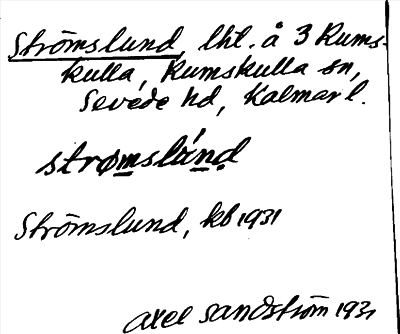 Strömslund, lht. å 3 Rums-
kulla, Rumskulla sn,
Sevede hd, Kalmar l.
Strömslund, kb 1931
Axel Sandström 1931